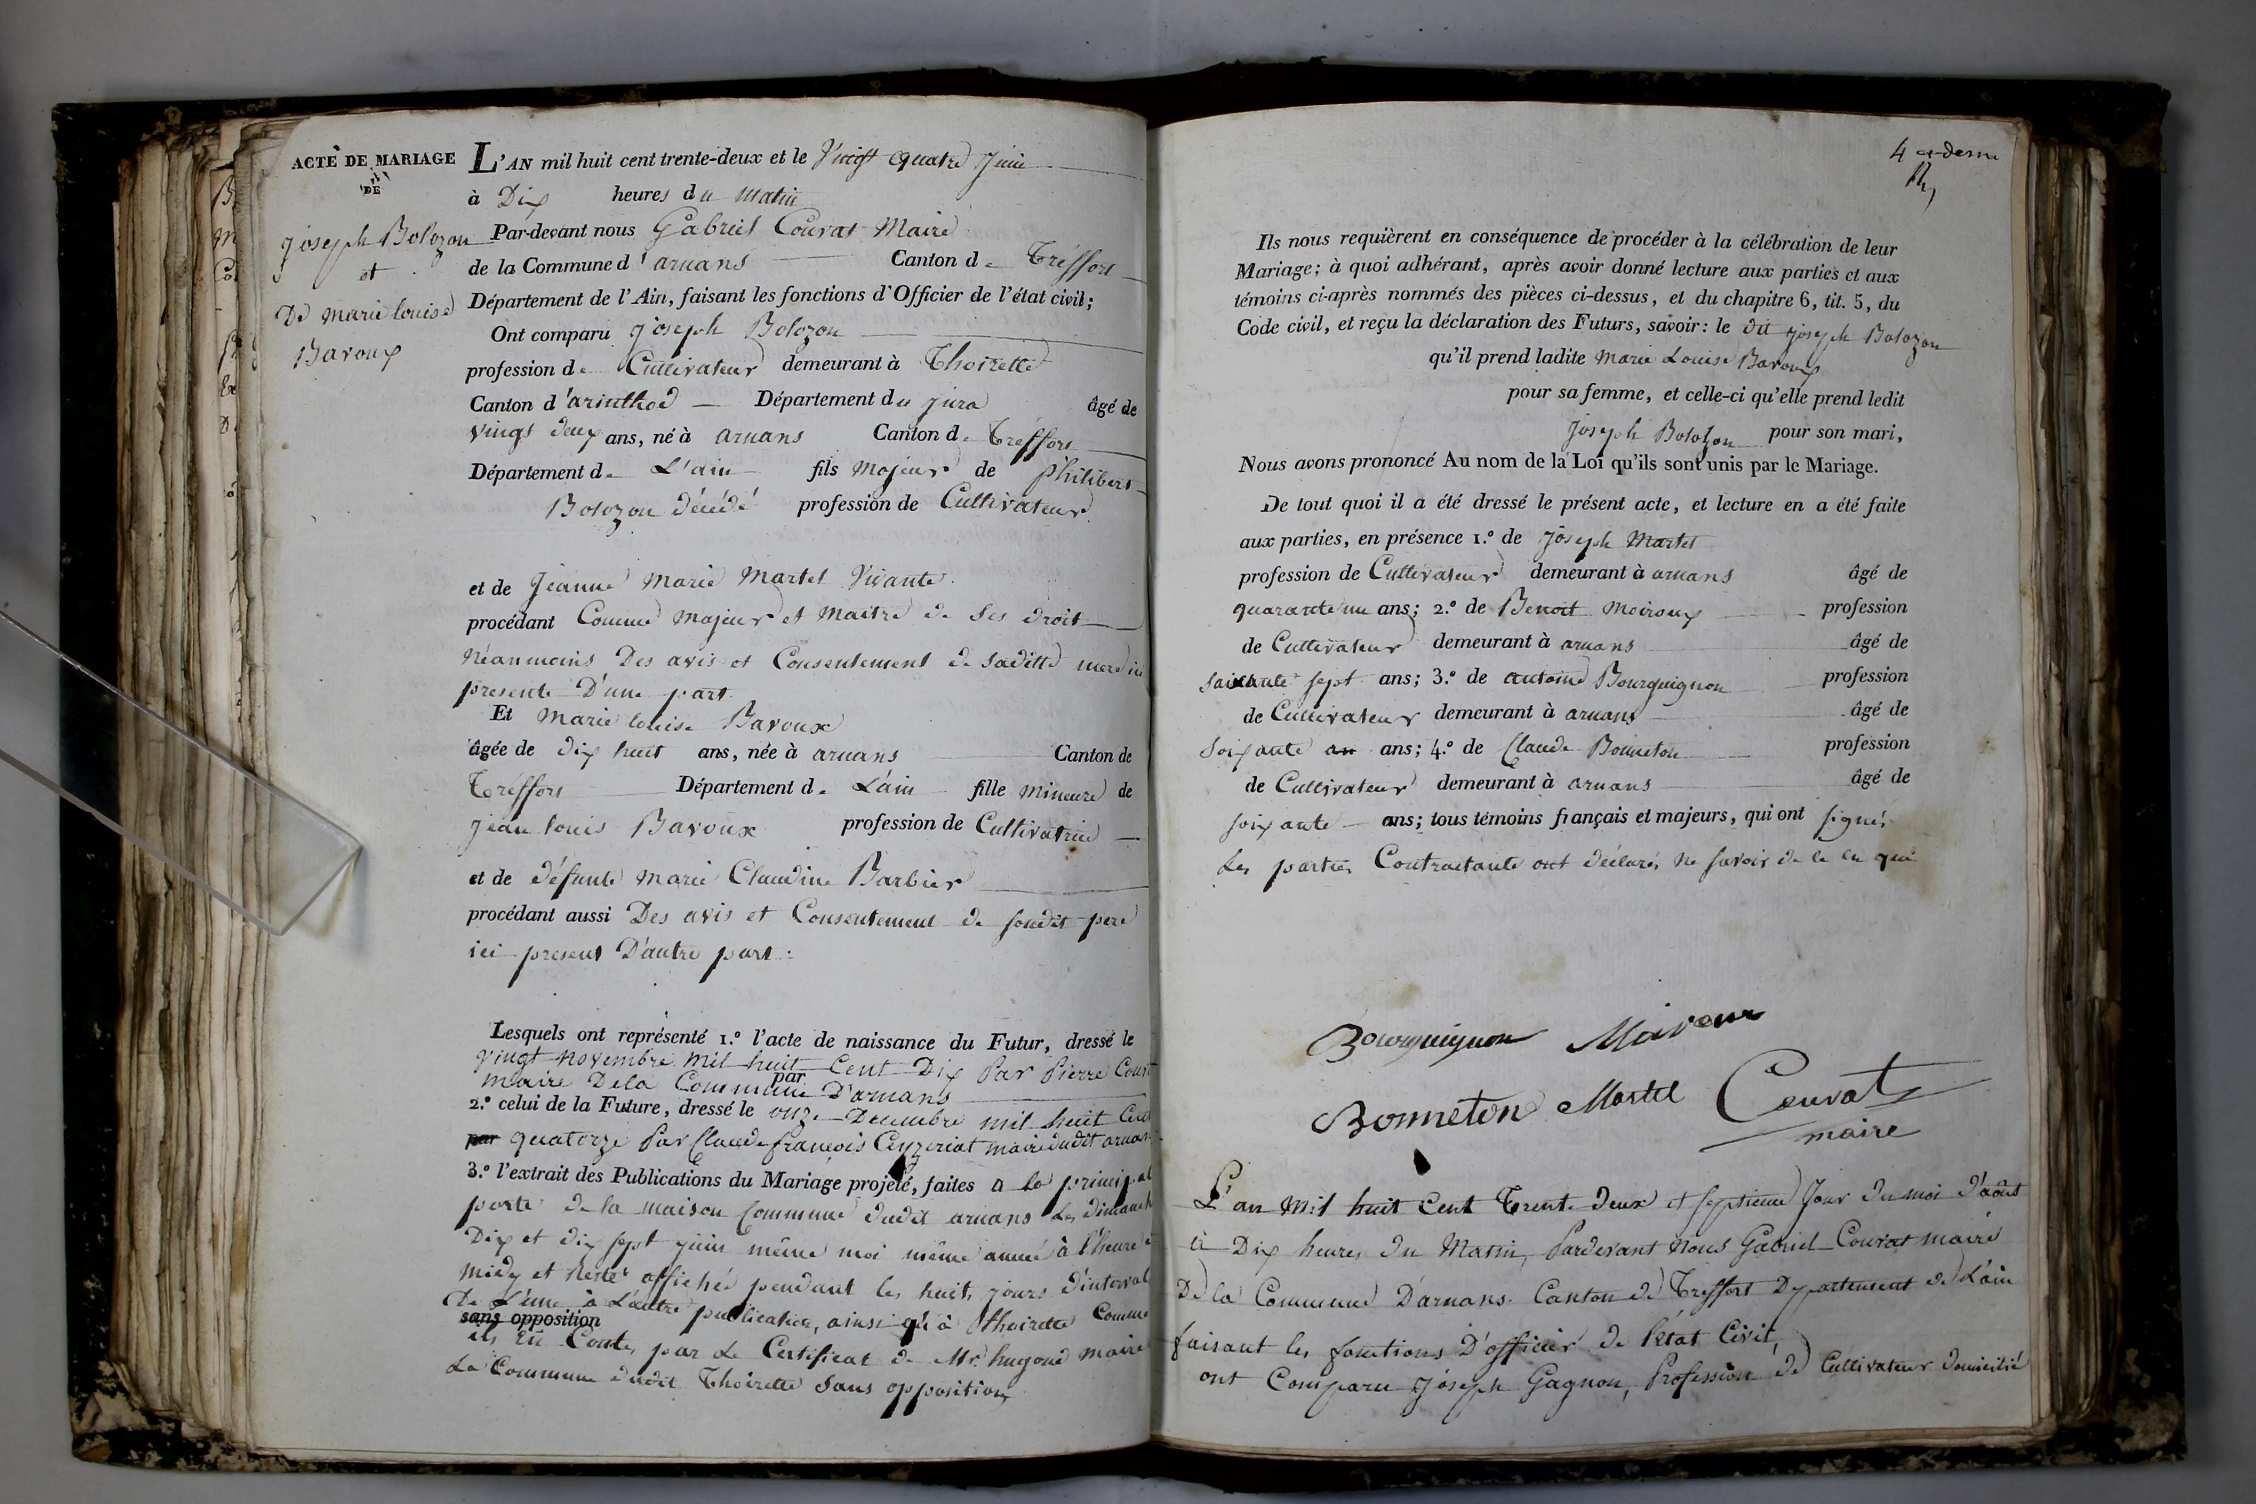 ACTE DE MARIAGE
DE
joseph Bolozon
et
De marie louise
Baroux
L'AN mil huit cent trente-deux et le Vingt quatre juin
à Dix heures du matin
Par-devant nous Gabriel Couvat Maire
de la Commune d'arnans Canton de Tréffort
Département de l'Ain, faisant les fonctions d'Officier de l'état civil;
Ont comparu joseph Bolozon
profession de Cultivateur demeurant à Thoirette
Canton d'arinthod Département du jura âgé de
vingt deux ans, né à arnans Canton de Tréffort
Département de L'ain fils majeur de philibert
Bolozon décédé profession de Cultivateur
et de jeanne marie martel Vivante
procédant Comme majeur et maitre de ses droit
néanmoins Des avis et Consentement de saditte mere ici
presente D'une part
Et marie louise Baroux
âgée de dix huit ans, née à arnans Canton de
Tréffort Département de L'ain fille mineure de
jean louis Baroux profession de Cultivatrice
et de défunte marie Claudine Barbier
procédant aussi Des avis et Consentement de soudit pere
ici present D'autre part.
Lesquels ont représenté 1.º l'acte de naissance du Futur, dressé le
vingt novembre mil huit Cent Dix Par Pierre
maire De la Commune par D'arnans
2.º celui de la Future, dressé le onze Decembre mil huit Cent
par quatorze Par Claude françois Ceyzeriat maire dudit arnans
3.º l'extrait des Publications du Mariage projeté, faites a la principal
porte de la maison Commune dudit arnans les dimanch
Dix et dix sept juin même moi même année à l'heure de
midy et resté affiché pendant les huit jours d'interval
de L'une à L'autre publication, ainsi qu'à thoirette Comme
sans opposition
il en Conte, par Le Certificat de Mr. hugond maire
La Commune dudit Thoirette sans opposition
4 ce-derne
Ils nous requièrent en conséquence de procéder à la célébration de leur
Mariage; à quoi adhérant, après avoir donné lecture aux parties et aux
témoins ci-après nommés des pièces ci-dessus, et du chapitre 6, tit. 5, du
Code civil, et reçu la déclaration des Futurs, savoir: le dit joseph Bolozon
qu'il prend ladite marie Louise Baroux
pour sa femme, et celle-ci qu'elle prend ledit
joseph Bolozon pour son mari,
Nous avons prononcé Au nom de la Loi qu'ils sont unis par le Mariage.
De tout quoi il a été dressé le présent acte, et lecture en a été faite
aux parties, en présence 1.º de joseph Martel
profession de Cultivateur demeurant à arnans âgé de
quarante un ans; 2.º de Benoit Moiroux profession
de Cultivateur demeurant à arnans âgé de
soixante sept ans; 3.º de antoine Bourguignon profession
de Cultivateur demeurant à arnans âgé de
soixante an ans; 4.º de Claude Bonneton profession
de Cultivateur demeurant à arnans âgé de
soixante ans; tous témoins français et majeurs, qui ont signés
Les parties Contractante ont déclarés ne savoir de le en qui
Bourguignon Moiroux
Bonneton Martel Couvat
maire
L'an Mil huit Cent Trente Deux et septieme Jour du moi D'aout
à Dix heures Du Matin, Pardevant Nous Gabriel Couvat maire
De la Commune D'arnans. Canton de Treffort Departement de L'ain
faisant les fonctions D'officier de l'état Civil,
ont Comparu joseph Gagnon, Profession de Cultivateur Domicilié